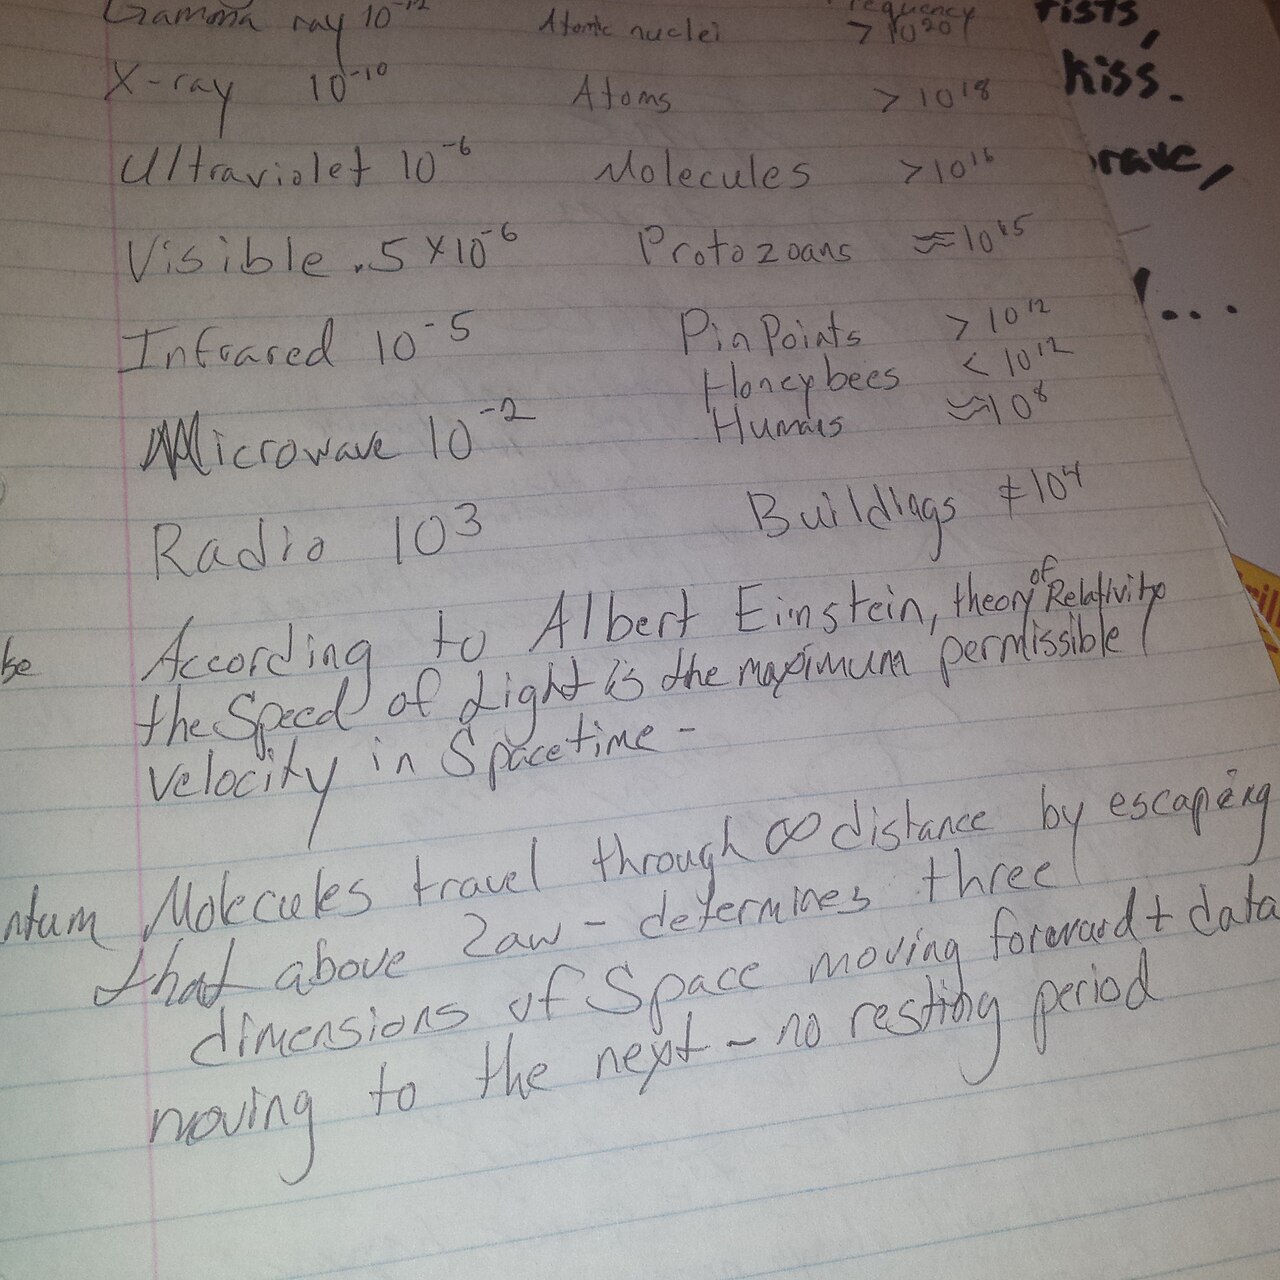 Gamma ray 10⁻¹² Atomic nuclei >10²⁰
X-ray 10⁻¹⁰ Atoms >10¹⁸
Ultraviolet 10⁻⁶ Molecules >10¹⁶
Visible .5 x 10⁻⁶ Protozoans ≈10¹⁵
Infrared 10⁻⁵ Pin Points >10¹²
Honeybees <10¹²
Microwave 10⁻² Humans ≈10⁸
Radio 10³ Buildings 10⁴
According to Albert Einstein, theory of Relativity
the Speed of Light is the maximum permissible
velocity in Spacetime -
Molecules travel through ∞ distance by escaping
that above Law - determines three
dimensions of Space moving forward + data
moving to the next - no resting period
be
ntum
rists,
kiss.
rave,
...